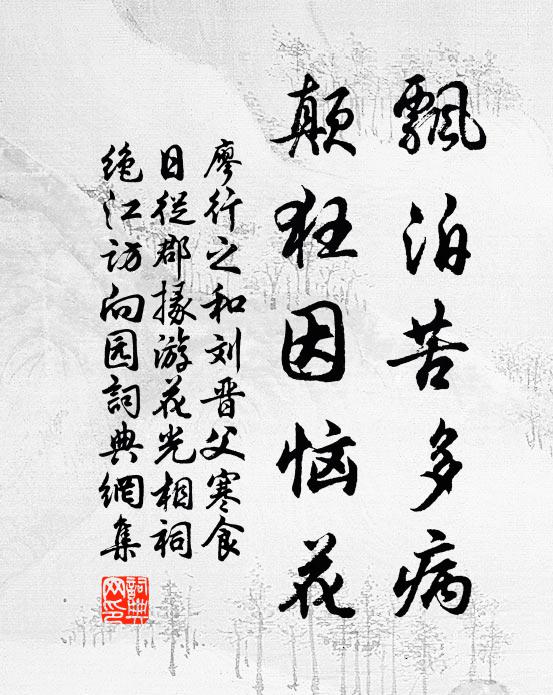 飄泊苦多病
顛狂因恼花
廖行之和刘晋父寒食
日從郡掾游花光相祠
绝江访向园詞典網集
詞典網印